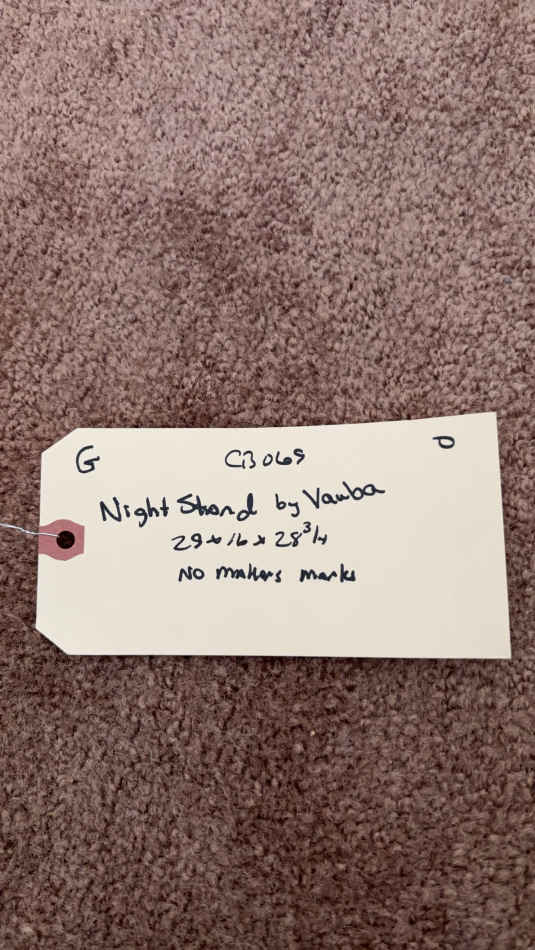 G CB069 D
Night Stand by Vamba
29 x 16 x 28 3/4
No makers marks